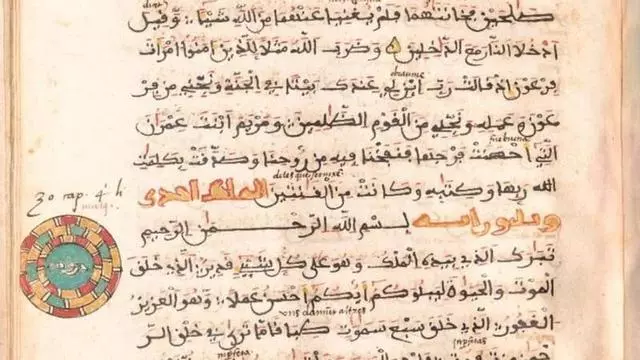 صَٰلِحَيْنِ فَخَانَتَٰهُمَا فَلَمْ يُغْنِيَا عَنْهُمَا مِنَ اللَّهِ شَيْئًا وَقِيلَ
ادْخُلَا النَّارَ مَعَ الدَّٰخِلِينَ وَضَرَبَ اللَّهُ مَثَلًا لِلَّذِينَ آمَنُوا امْرَأَتَ
فِرْعَوْنَ إِذْ قَالَتْ رَبِّ ابْنِ لِي عِندَكَ بَيْتًا فِي الْجَنَّةِ وَنَجِّنِي مِن فِرْ
عَوْنَ وَعَمَلِهِ وَنَجِّنِي مِنَ الْقَوْمِ الظَّٰلِمِينَ وَمَرْيَمَ ابْنَتَ عِمْرَٰنَ
الَّتِي أَحْصَنَتْ فَرْجَهَا فَنَفَخْنَا فِيهِ مِن رُّوحِنَا وَصَدَّقَتْ بِكَلِمَٰتِ
رَبِّهَا وَكِتَٰبِهِ وَكَانَتْ مِنَ الْقَٰنِتِينَ الملك احدى
بِسْمِ اللَّهِ الرَّحْمَٰنِ الرَّحِيمِ
تَبَٰرَكَ الَّذِي بِيَدِهِ الْمُلْكُ وَهُوَ عَلَىٰ كُلِّ شَيْءٍ قَدِيرٌ الَّذِي خَلَقَ
الْمَوْتَ وَالْحَيَوٰةَ لِيَبْلُوَكُمْ أَيُّكُمْ أَحْسَنُ عَمَلًا وَهُوَ الْعَزِيزُ
الْغَفُورُ الَّذِي خَلَقَ سَبْعَ سَمَٰوَٰتٍ طِبَاقًا مَّا تَرَىٰ فِي خَلْقِ الرَّ
30 rap. 4 h